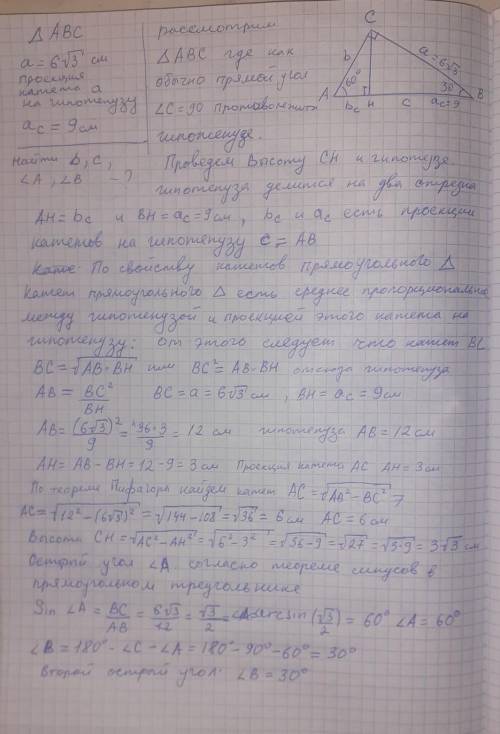 △ABC
a = 6√3 см
проекция
катета a
на гипотенузу
a_c = 9 см
Найти b, c,
∠A, ∠B - ?
рассмотрим
△ABC где как
обычно прямой угол
∠C = 90 противолежит
гипотенузе.
C
b
a = 6√3
A
60°
30°
B
b_c
H
c
a_c = 9
Проведем высоту CH к гипотузе
гипотенуза делится на два отрезка
AH = b_c и BH = a_c = 9 см, b_c и a_c есть проекции
катетов на гипотенузу c = AB
По свойству катетов прямоугольного △
катет прямоугольного △ есть среднее пропорциональное
между гипотенузой и проекцией этого катета на
гипотенузу: от этого следует что катет BC
BC = √AB·BH или BC² = AB·BH отсюда гипотенуза
AB = BC²/BH BC = a = 6√3 см, BH = a_c = 9 см
AB = (6√3)²/9 = 36·3/9 = 12 см гипотенуза AB = 12 см
AH = AB - BH = 12 - 9 = 3 см Проекция катета AC AH = 3 см
По теореме Пифагора найдем катет AC = √AB² - BC²
AC = √12² - (6√3)² = √144 - 108 = √36 = 6 см AC = 6 см
Высота CH = √AC² - AH² = √6² - 3² = √36 - 9 = √27 = √3·9 = 3√3 см
Острый угол ∠A согласно теореме синусов в
прямоугольном треугольнике
Sin ∠A = BC/AB = 6√3/12 = √3/2 ∠A = arcsin(√3/2) = 60° ∠A = 60°
∠B = 180° - ∠C - ∠A = 180° - 90° - 60° = 30°
Второй острый угол ∠B = 30°